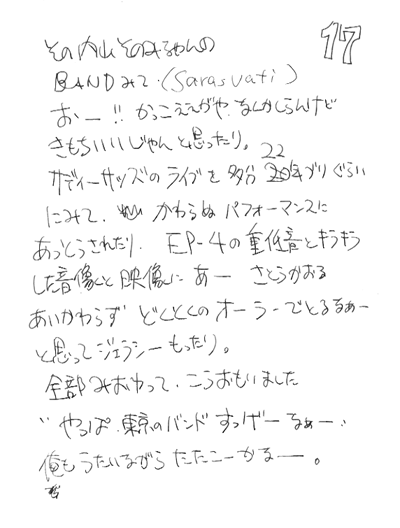 17
その内山そのみちゃんの
BANDみて.(Sarasvati)
おー!! かっこええがや.なんかしらんけど
きもちいいじゃんと思ったり。
サディーサッズのライブを多分22年ブリぐらい
にみて、かわらぬパフォーマンスに
あっとうされたり. EP-4の重低音とキラキラ
した音像と映像に あー さとうかおる
あいかわらず どくとくのオーラーでとるなぁー
と思ってジェラシーもったり。
全部みおわって、こうおもいました
"やっぱ.東京のバンド すっげーなぁー"
俺もうたいながら たたこーかなー。